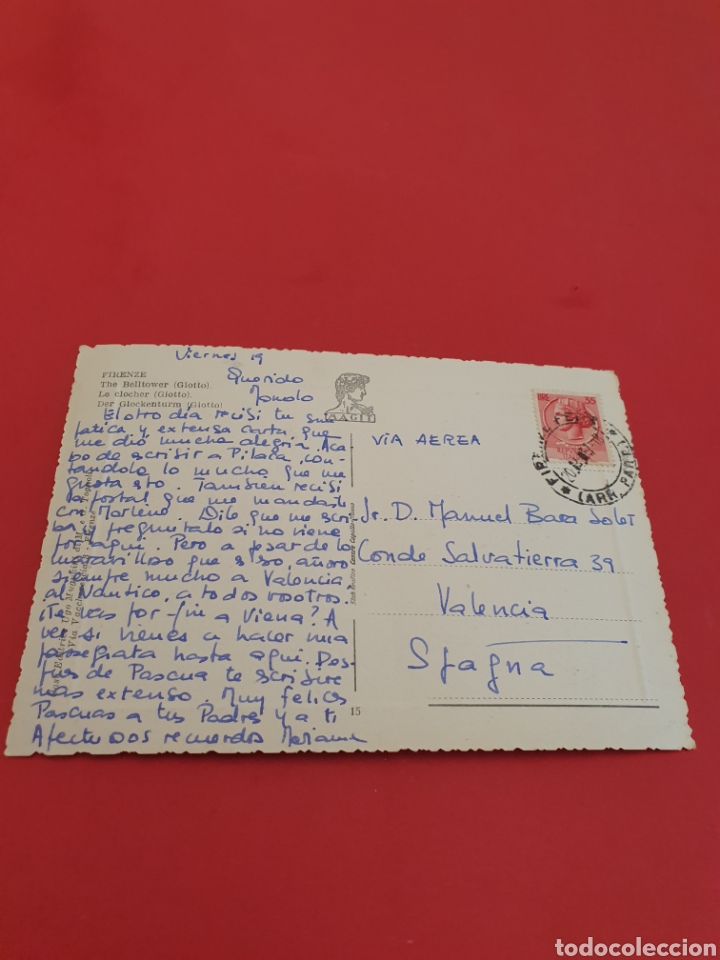 Viernes 19
FIRENZE
The Belltower (Giotto).
Le clocher (Giotto).
Der Glockenturm (Giotto)
Querido
Manolo
El otro día recisi tu sim
patica y extensa carta que
me dió mucha alegria. Aca
bo de escrisir a Pilaca, con-
tandole lo mucho que me
gusta sto. Tamsien recisi
la postal que me mandaste
con Marlene. Dile que me scri
ba. preguntado si no viene
por aqui. Pero a pesar de lo
maravilloso que s sso, añoro
siempre mucho a Valencia
al Naútico, a todos vosotros.
¡Te vas por-fin a Viena? A
ver si vienes a hacer una
escapata hasta aqui. Des-
pues de Pascua te scrisire
mas extenso. Muy felices
Pascuas a tus Padres y a ti
Afectuosos recuerdos Mariame
AAGIT
15
VIA AEREA
LIRE 55
FIRENZE
Sr. D. Manuel Bara Soler
Conde Salvatierra 39
Valencia
Spagna
todocoleccion